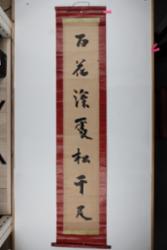 百花深處松千尺